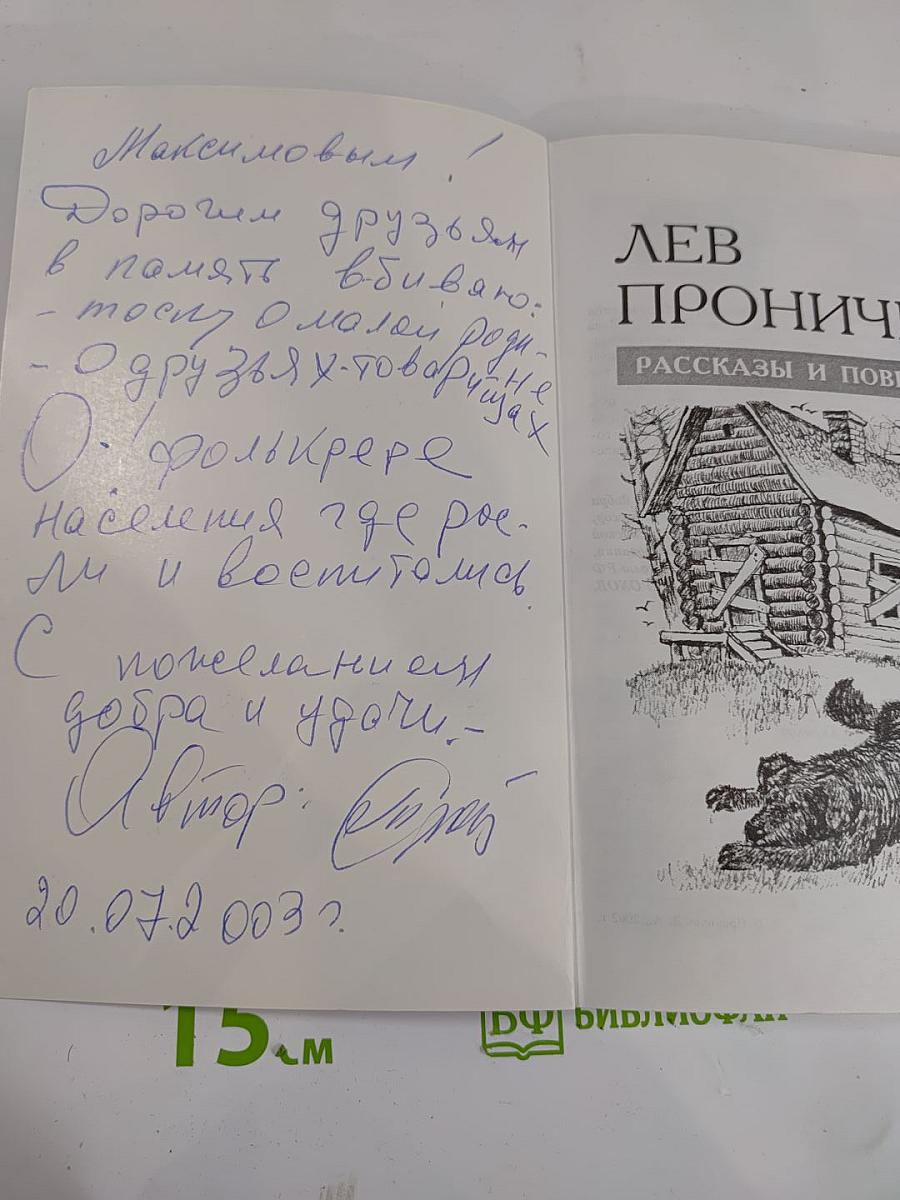 Максимовым!
Дорогим друзьям
в память вбиваю:
- тоску о малой роди-
не
- О друзьях-товарищах
О! фолькрере
населения где рос-
ли и воспитались.
С пожеланием
добра и удачи. -
Автор:
20.07.2003 г.
ЛЕВ
ПРОНИЧ
РАССКАЗЫ И ПОВ
15 см
БФ БИБЛИОФАН